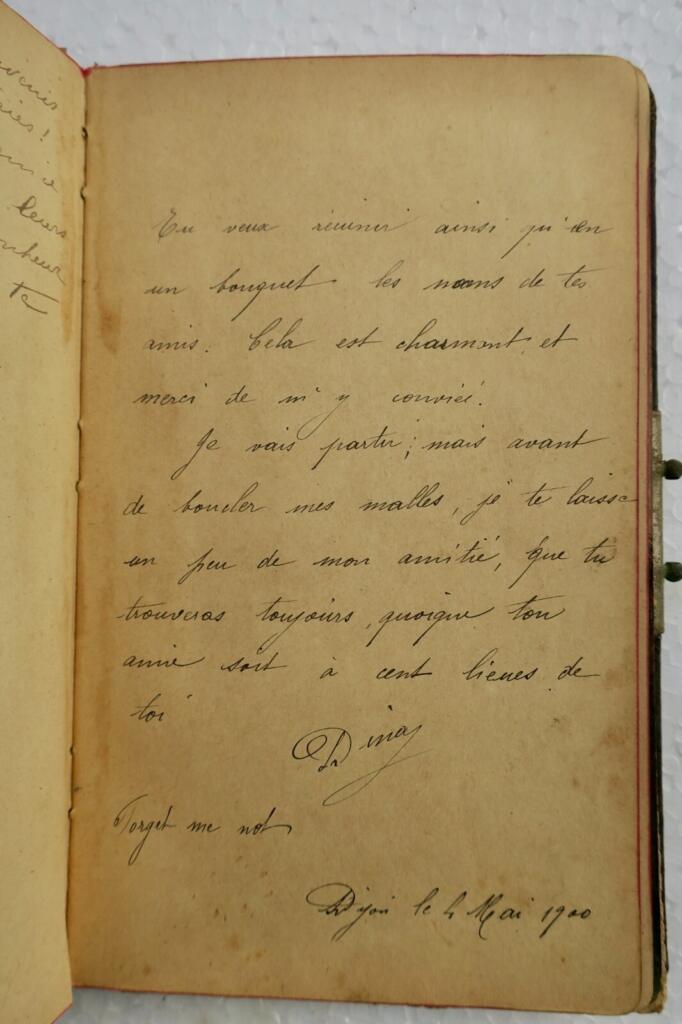 venis
leurs
nheur
te
Tu veux réunir ainsi qu'en
un bouquet les noms de tes
amis. Cela est charmant et
merci de m'y convier.
Je vais partir ; mais avant
de boucler mes malles, je te laisse
un peu de mon amitié, que tu
trouveras toujours, quoique ton
amie soit à cent lieues de
toi
Dina
Forget me not
Dijon le 4 Mai 1900